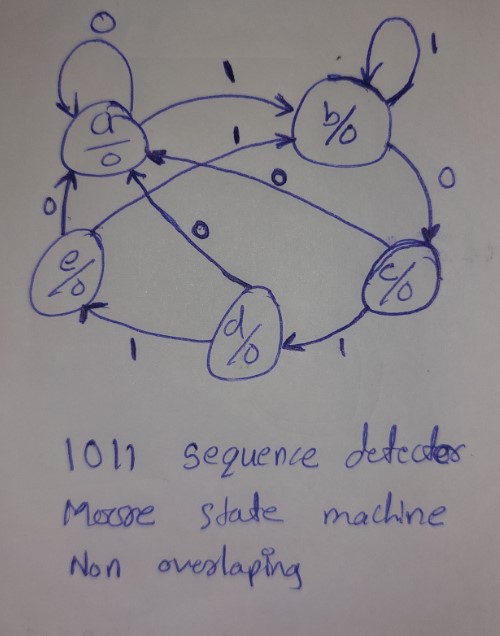 0
1
1
a/0
b/0
1
0
0
0
0
e/0
c/0
d/0
1
1
1011 sequence detector
Moore state machine
Non overlaping